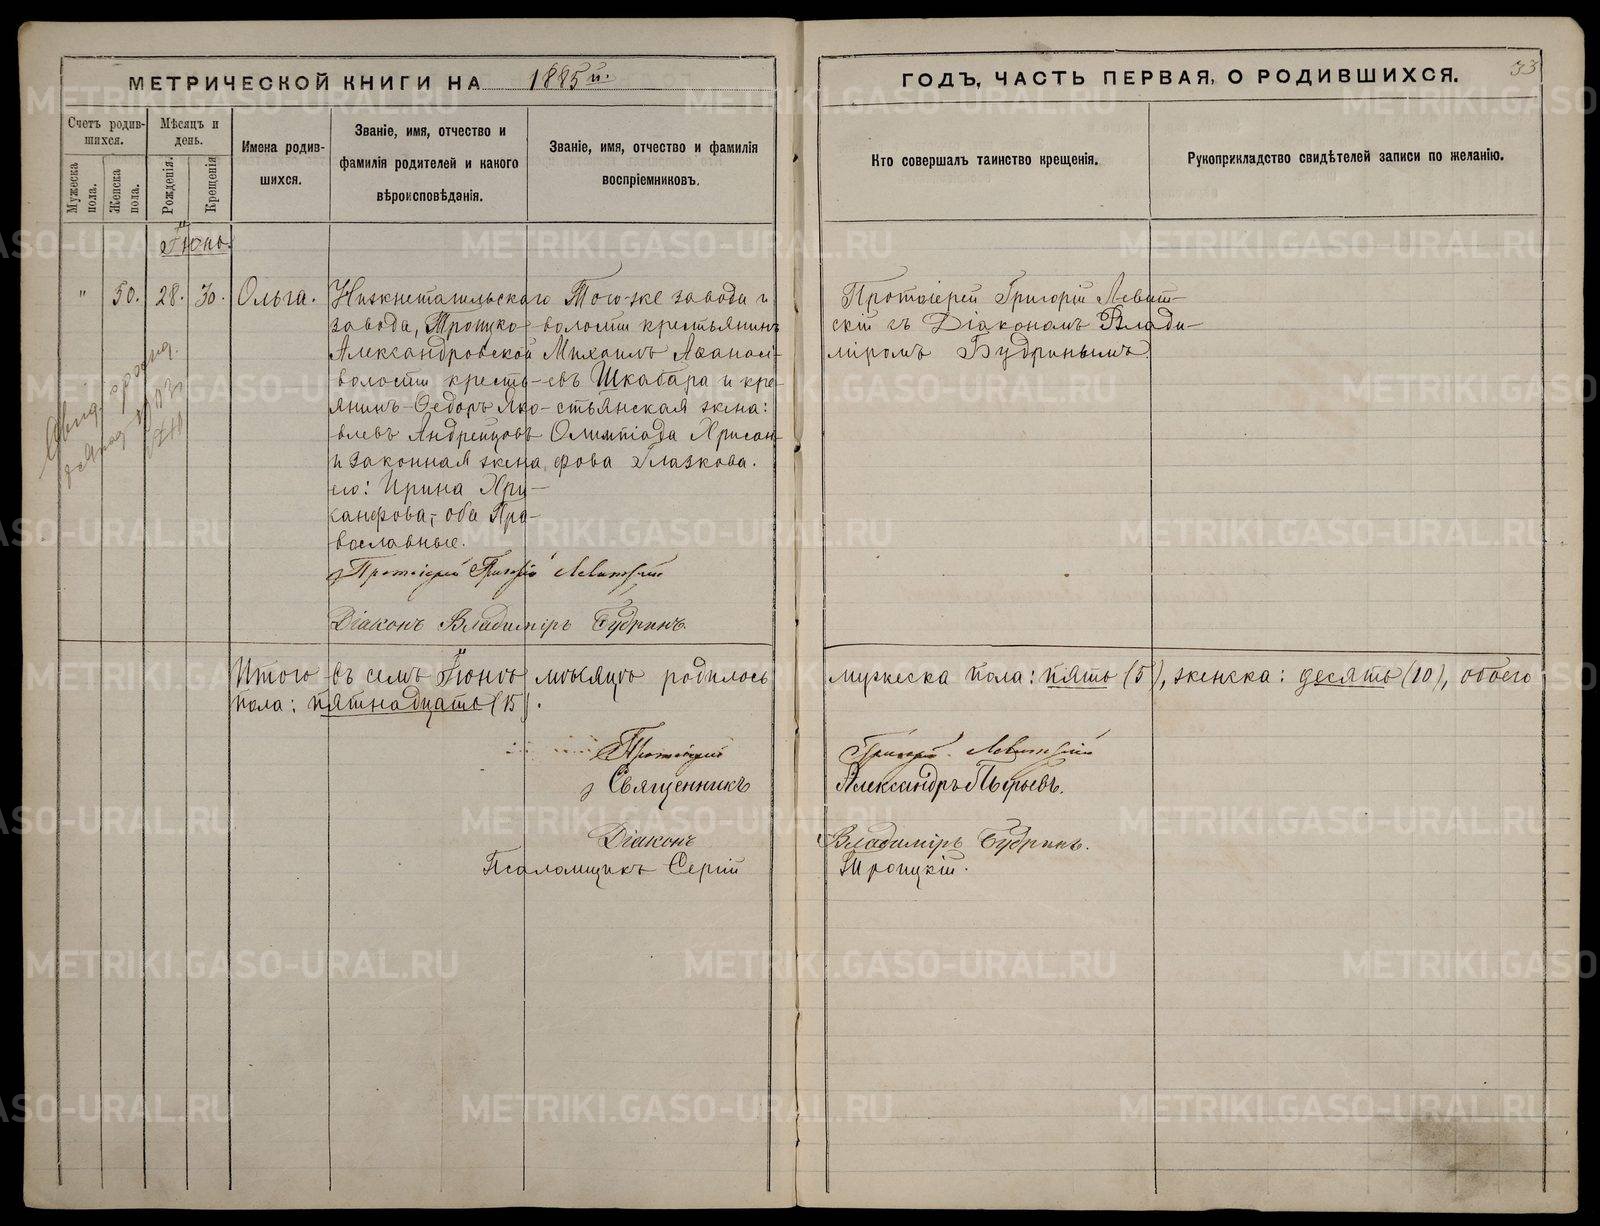 МЕТРИЧЕСКОЙ КНИГИ НА 1885 й.
ГОДЪ, ЧАСТЬ ПЕРВАЯ, О РОДИВШИХСЯ.
33
Счетъ родив-
шихся.
Мужеска пола.
Женска пола.
Мѣсяцъ и
день.
Рожденія.
Крещенія.
Имена родив-
шихся.
Званіе, имя, отчество и
фамилія родителей и какого
вѣроисповѣданія.
Званіе, имя, отчество и фамилія
воспріемниковъ.
Кто совершалъ таинство крещенія.
Рукоприкладство свидѣтелей записи по желанію.
Іюнь.
" 50. 28. 30. Ольга.
Нижнетагильскаго
завода, Троицко-
Александровской
волости кресть-
янинъ Ѳедоръ Яко-
влевъ Андрейцовъ
и законная жена
его: Ирина Хри-
санфова, оба Пра-
вославные.
Того-же завода и
волости крестьянинъ
Михаилъ Аѳанась-
евъ Шкабара и кре-
стьянская жена:
Олимпіада Хрисан-
фова Глазкова.
Протоіерей Григорій Левит-
скій съ Діакономъ Влади-
міромъ Будринымъ
Протоіерей Григорій Левитскій
Діаконъ Владиміръ Будринъ
Итого въ семъ Іюнѣ мѣсяцѣ родилось мужеска пола: пять (5), женска: десять (10), обоего
пола: пятнадцать (15).
Протоіерей Григорій Левитскій
Священникъ Александръ Пырьевъ.
Діаконъ Владиміръ Будринъ.
Псаломщикъ Сергій Троицкій.
METRIKI.GASO-URAL.RU